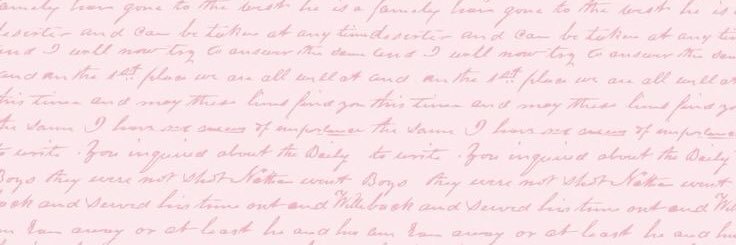 family has gone to the west he is a family has gone to the west he is a
deserter and can be taken at any time deserter and can be taken at any
and I will now try to answer the same and I will now try to answer the same
and on the 1st place we are all well at and on the 1st place we are all well at
this time and may these lines find you this time and may these lines find you
the same I have not of importance the same I have not of importance
to write . You inquired about the Daily to write . You inquired about the Daily
Boys they were not shot went Boys they were not shot went
back and served his time out and Will back and served his time out and
ran away or at least he and his ran away or at least he and